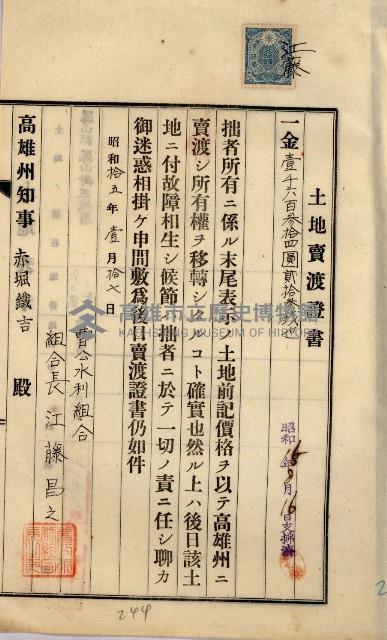 江藤
土地賣渡證書
一金壹千六百參拾四圓貳拾參錢也
拙者所有ニ係ル末尾表示ノ土地前記價格ヲ以テ高雄州ニ
賣渡シ所有權ヲ移轉シタルコト確實也然ル上ハ後日該土
地ニ付故障相生シ候節ハ拙者ニ於テ一切ノ責ニ任シ聊カ
御迷惑相掛ケ申間敷為後日賣渡證書仍如件
昭和拾五年壹月拾七日
曹公水利組合
組合長 江藤昌之
高雄州知事 赤堀鐵吉 殿
昭和15年9月16日支拂濟
高雄市立歷史博物館
KAOHSIUNG MUSEUM OF HISTORY
244
2